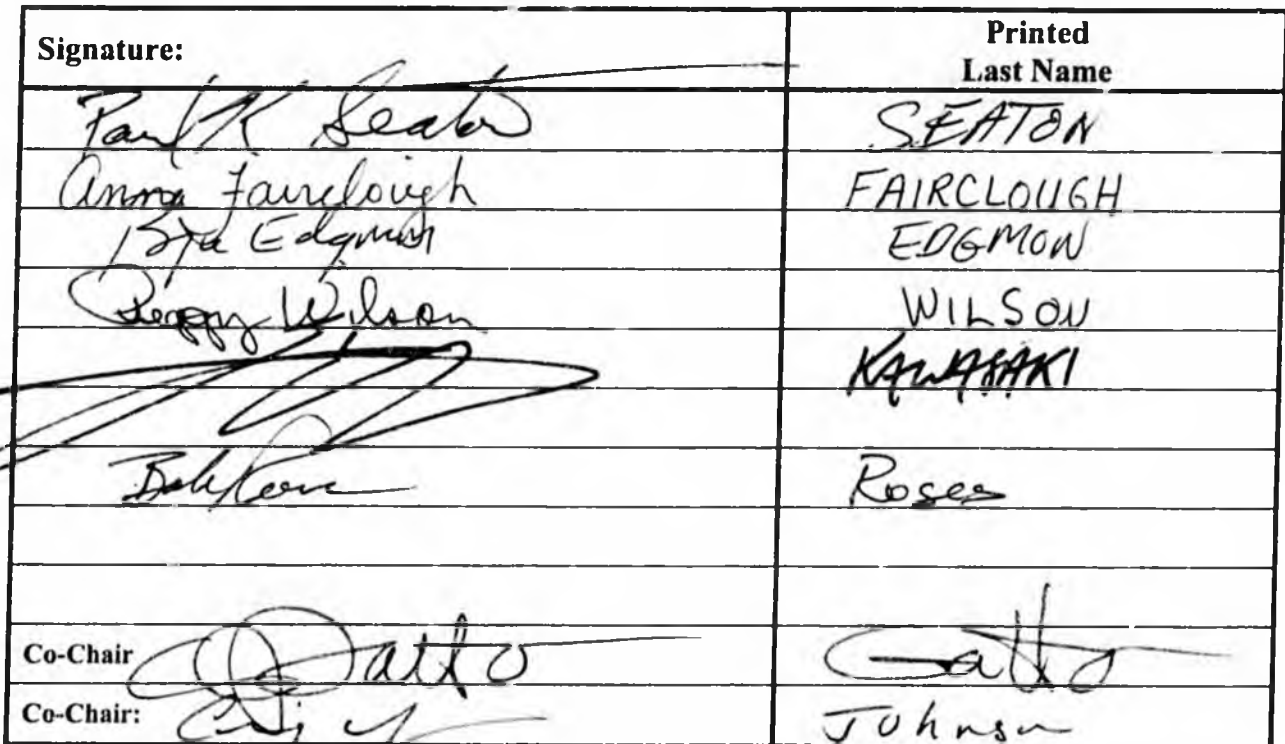 Signature: Printed
Last Name
Paul K Seaton SEATON
Anna Fairclough FAIRCLOUGH
Bryce Edgmon EDGMON
Peggy Wilson WILSON
KAWASAKI
Bob Roses Roses
Co-Chair Gatto Gatto
Co-Chair: Johnson